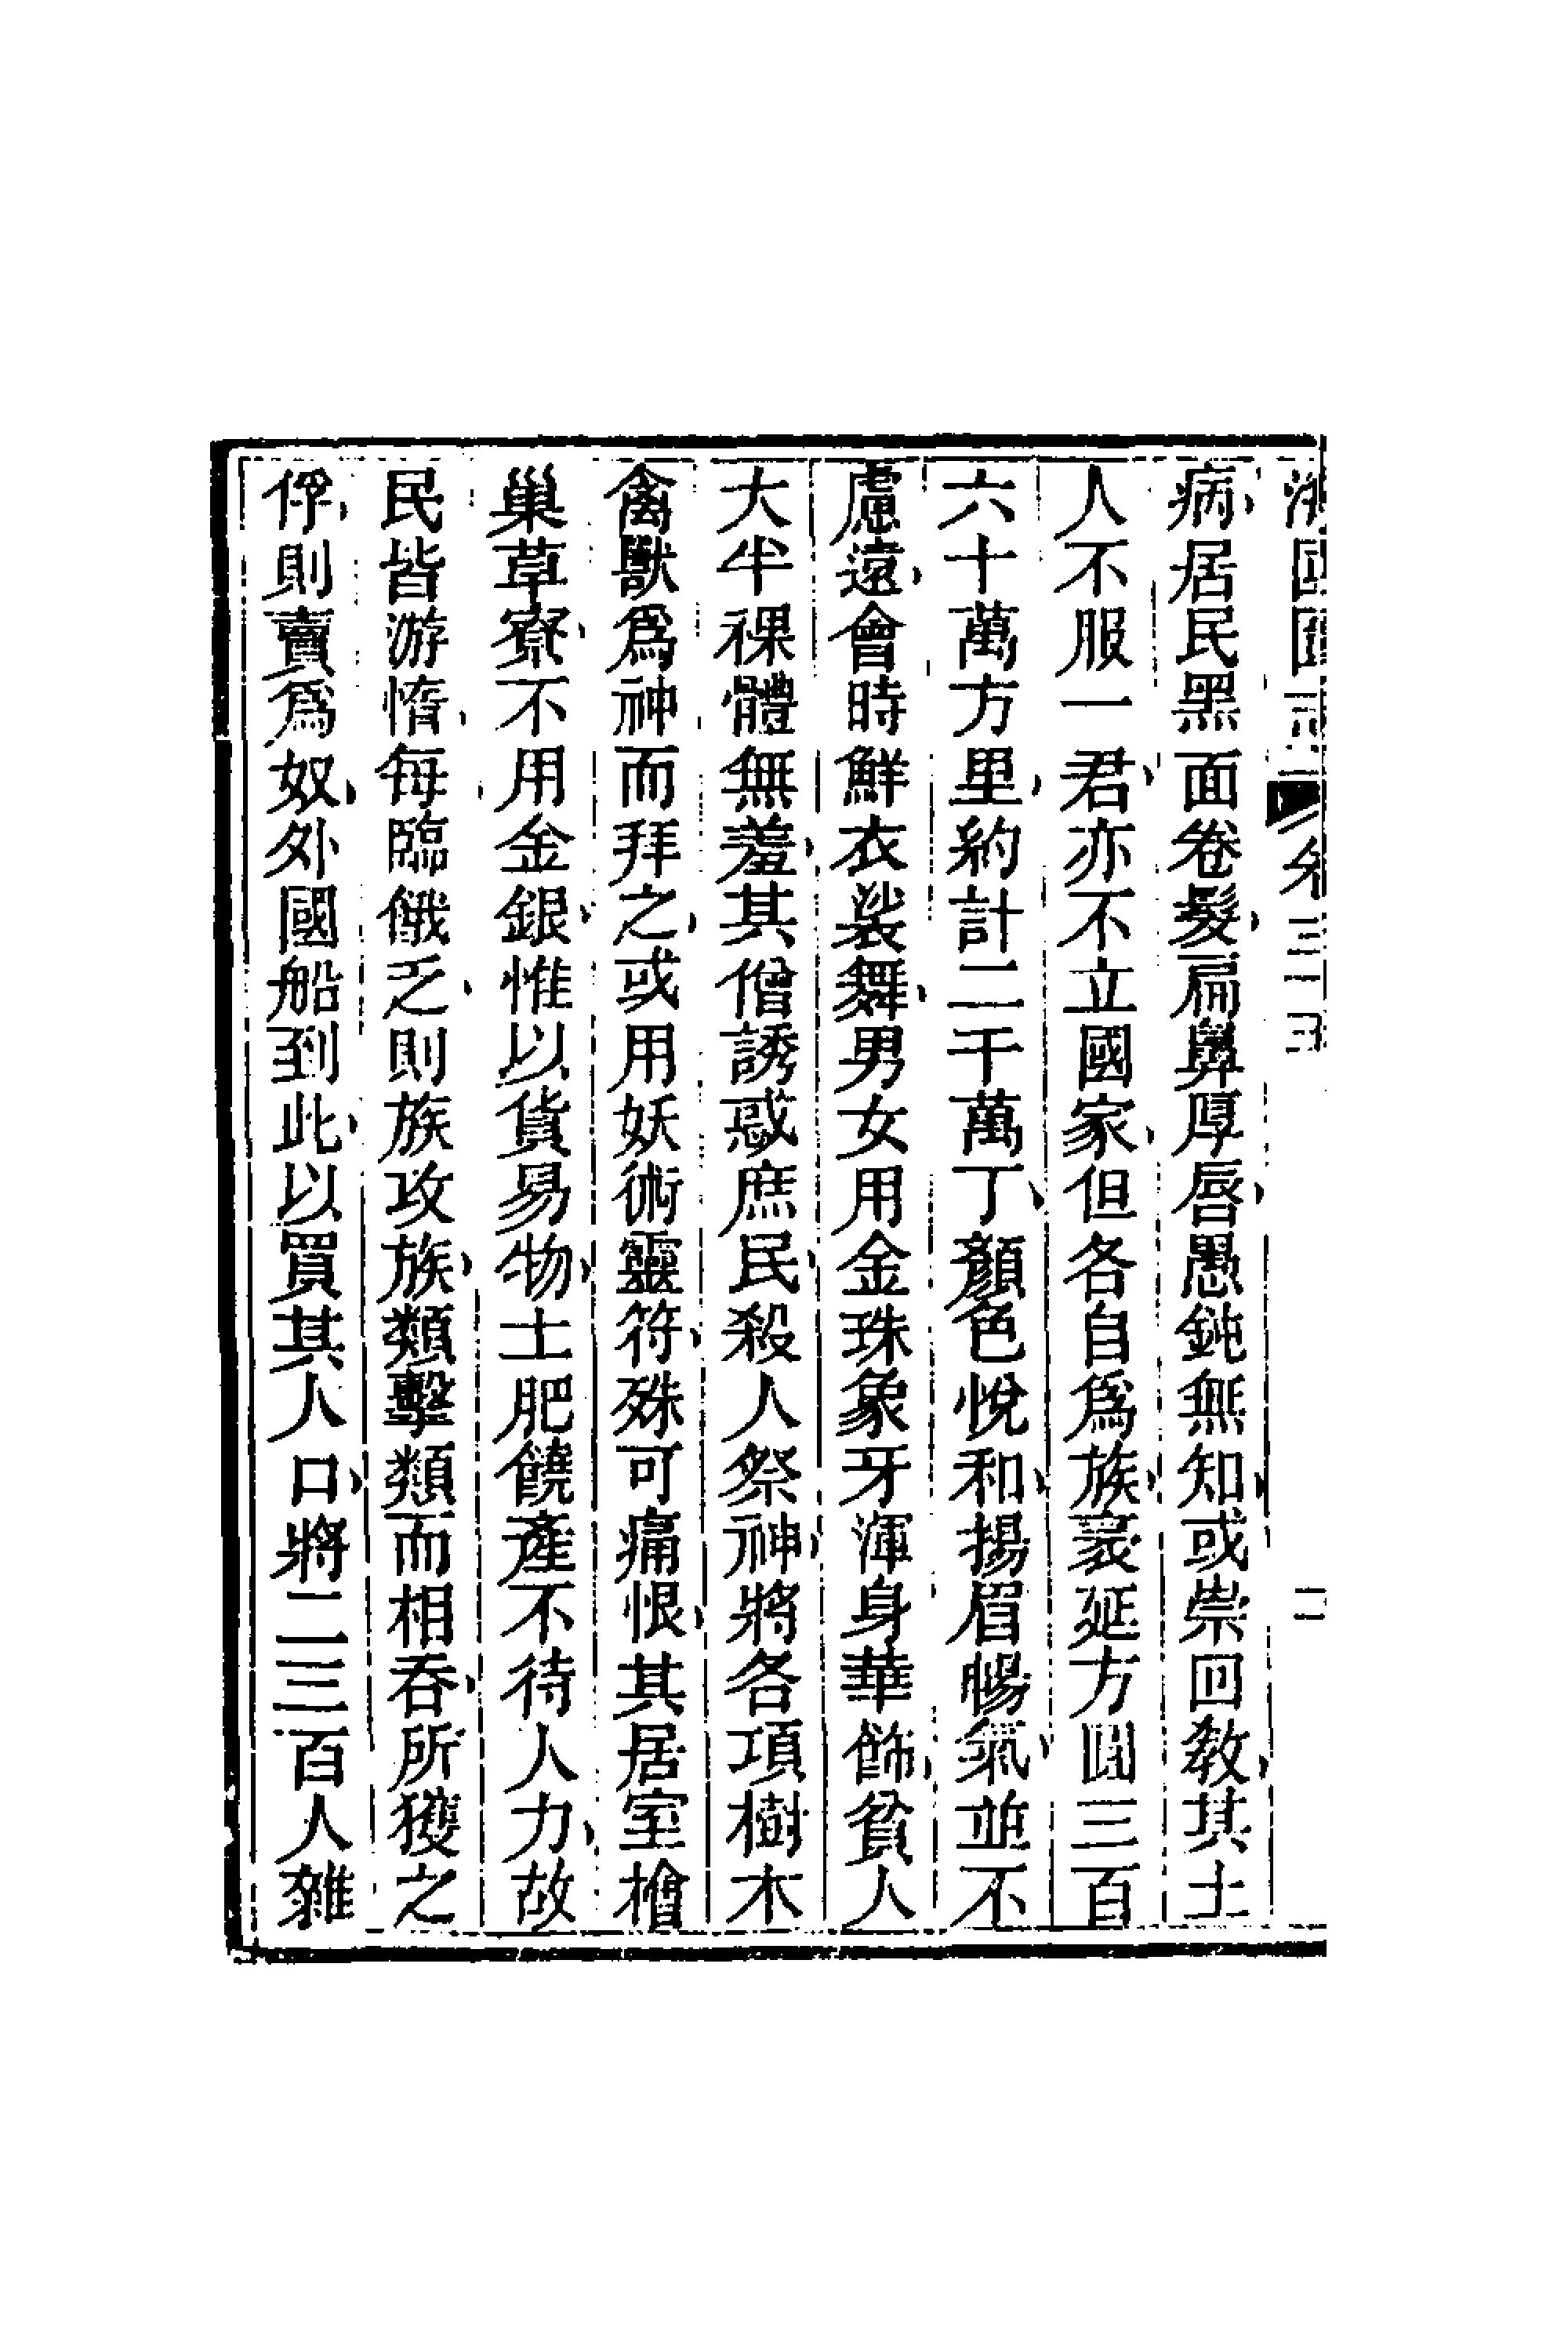 海國圖志 卷三十五 二
病、居民黑面卷髮、扁鼻厚唇、愚鈍無知、或崇回教、其土
人不服一君、亦不立國家、但各自爲族、衺延方圓三百
六十萬方里、約計二千萬丁、顏色悅和、揚眉暢氣、並不
慮遠、會時鮮衣裳舞、男女用金珠象牙渾身華飾、貧人
大半裸體無羞、其僧誘惑庶民、殺人祭神、將各項樹木
禽獸爲神而拜之、或用妖術靈符、殊可痛恨、其居室檜
巢草寮、不用金銀、惟以貨易物、土肥饒產不待人力、故
民皆游惰、每臨餓乏、則族攻族、類擊類而相吞、所獲之
俘、則賣爲奴、外國船到此、以買其人口、將二三百人雜